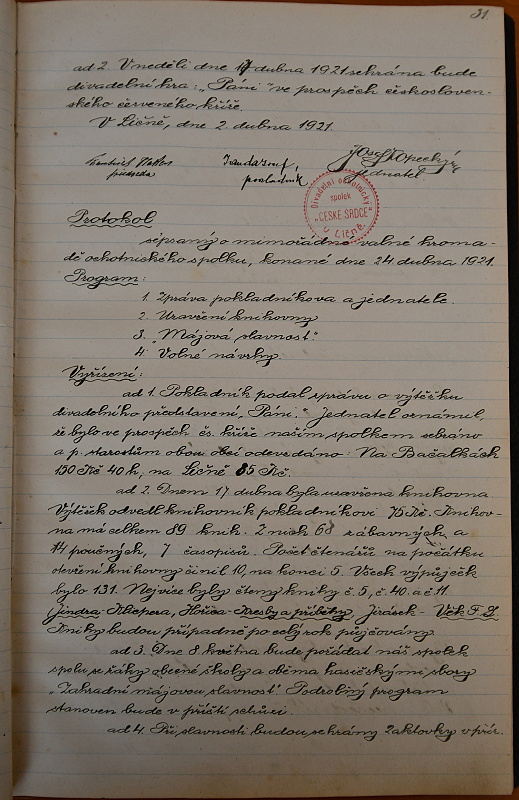 31.
ad 2. V neděli dne 17 dubna 1921 sehrána bude
divadelní hra: „Páni" ve prospěch českosloven-
ského červeného kříže.
V Lično, dne 2. dubna 1921.
Josef Kopecký
předseda
pokladník
jednatel
Divadelní ochotnický
spolek
„ČESKÉ SRDCE"
v Ličně.
Protokol
sepsaný o mimořádné valné hroma-
dě ochotnického spolku, konané dne 24 dubna 1921.
Program:
1. Zpráva pokladníkova a jednatele.
2. Uzavření knihovny
3. „Májová slavnost".
4. Volné návrhy.
Vyřízení:
ad 1. Pokladník podal zprávu o výtěžku
divadelního představení, „Páni." Jednatel oznámil,
že bylo ve prospěch čs. kříže naším spolkem sebráno
a p. starostům obou obcí odevzdáno: Na Bačalkách
150 Kč 40 h, na Ličně 85 Kč.
ad 2. Dnem 17 dubna byla uzavřena knihovna
Výtěžek odvedl knihovník pokladníkovi 75 Kč. Knihov-
na má celkem 89 knih. Z nich 68 zábavných, a
14 poučných, 7 časopisů. Počet čtenářů na počátku
otevření knihovny činil 10, na konci 5. Všech výpůjček
bylo 131. Nejvíce byly čteny knihy č. 5, č. 40. a č 11.
(Jindra - Klicpera, Hořica - Kresby a příběhy, Jirásek - Věk F. L.
Knihy budou případně po celý rok půjčovány.
ad 3. Dne 8 května bude pořádat náš spolek
spolu se žáky obecné školy a oběma hasičskými sbory
„Zahradní májovou slavnost". Podrobný program
stanoven bude v příští schůzi.
ad 4. Při slavnosti budou sehrány 2 aktovky v přír.